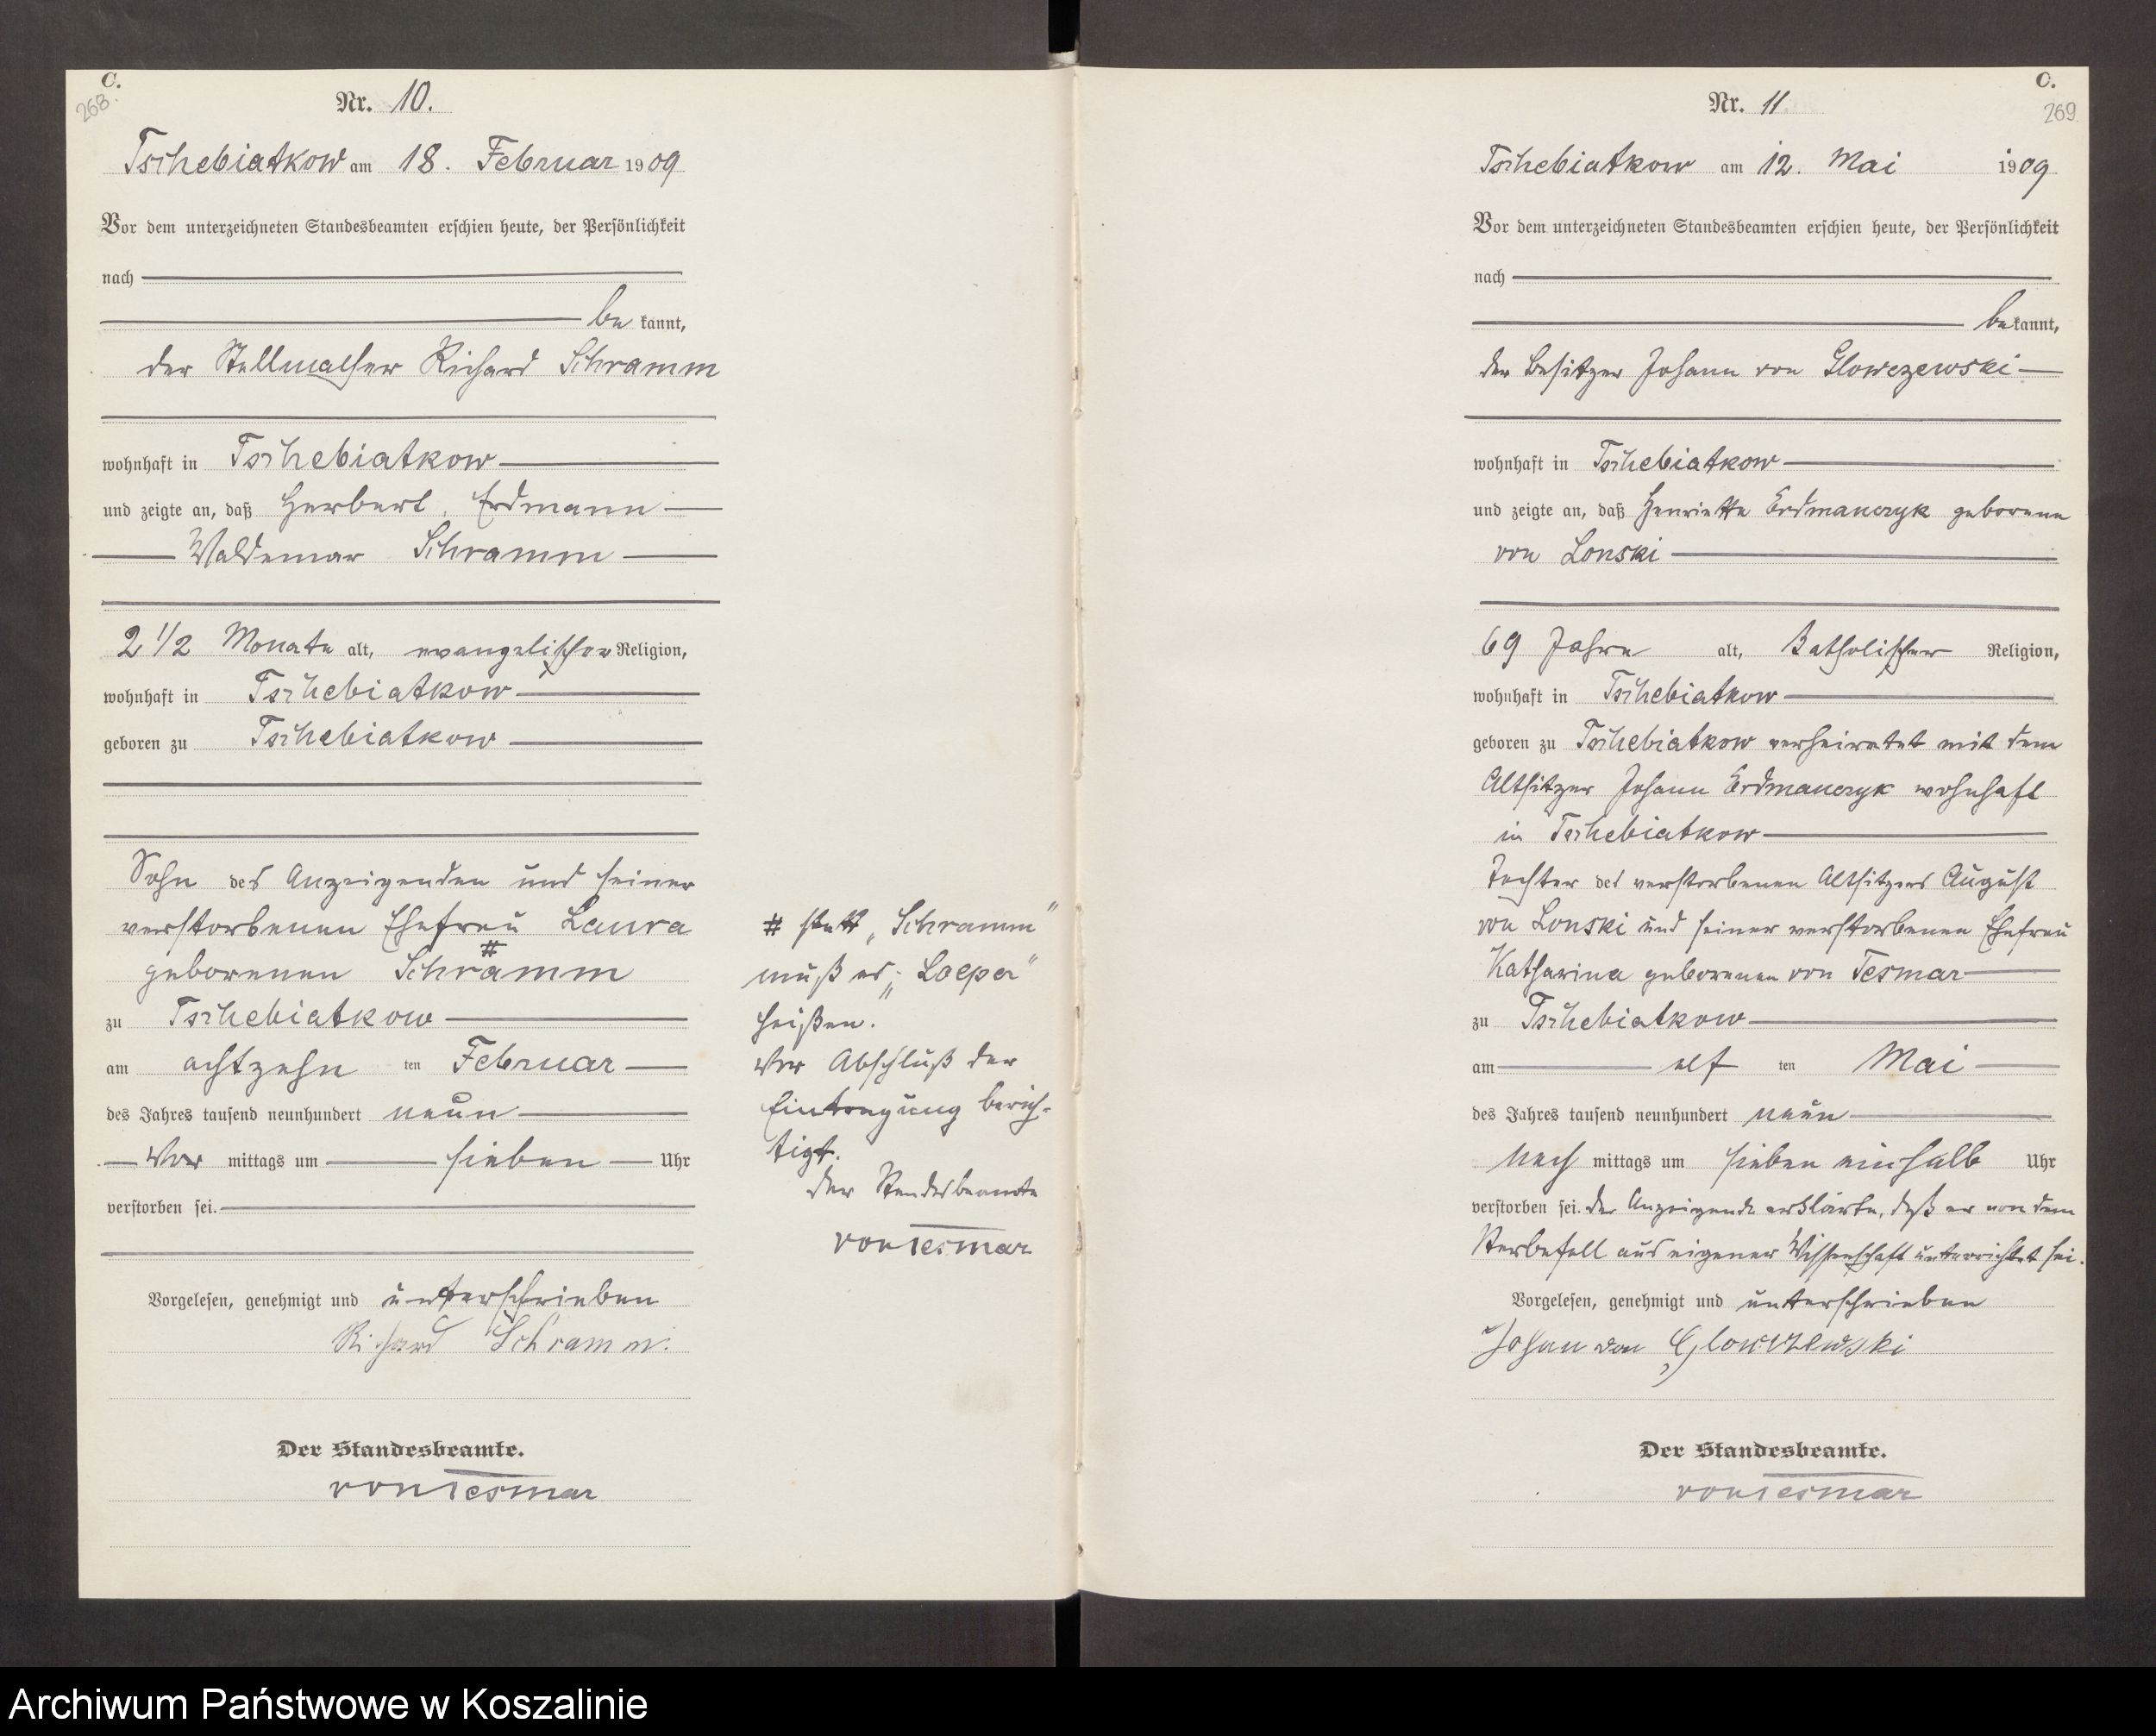 C.
268.
Nr. 10.
Tschebiatkow am 18. Februar 1909
Vor dem unterzeichneten Standesbeamten erschien heute, der Persönlichkeit
nach
be kannt,
der Stellmacher Richard Schramm
wohnhaft in Tschebiatkow
und zeigte an, daß Herbert, Erdmann
Waldemar Schramm
2 1/2 Monate alt, evangelischer Religion,
wohnhaft in Tschebiatkow
geboren zu Tschebiatkow
Sohn des Anzeigenden und seiner
verstorbenen Ehefrau Laura
geborenen Schramm #
zu Tschebiatkow
am achtzehn ten Februar
des Jahres tausend neunhundert neun
Vor mittags um sieben Uhr
verstorben sei.
Vorgelesen, genehmigt und unterschrieben
Richard Schramm.
Der Standesbeamte.
von Tesmar
# statt „Schramm"
muß es „Loeper"
heißen.
Vor Abschluß der
Eintragung berich-
tigt.
Der Standesbeamte
von Tesmar
C.
269
Nr. 11
Tschebiatkow am 12. Mai 1909
Vor dem unterzeichneten Standesbeamten erschien heute, der Persönlichkeit
nach
be kannt,
der Besitzer Johann von Glowczewski
wohnhaft in Tschebiatkow
und zeigte an, daß Henriette Erdmanczyk geborene
von Lonski
69 Jahre alt, Katholischer Religion,
wohnhaft in Tschebiatkow
geboren zu Tschebiatkow verheiratet mit dem
Altsitzer Johann Erdmanczyk wohnhaft
in Tschebiatkow
Tochter des verstorbenen Altsitzers August
von Lonski und seiner verstorbenen Ehefrau
Katharina geborenen von Tesmar
zu Tschebiatkow
am elf ten Mai
des Jahres tausend neunhundert neun
Nach mittags um sieben einhalb Uhr
verstorben sei. Der Anzeigende erklärte, daß er von dem
Sterbefall aus eigener Wissenschaft unterrichtet sei.
Vorgelesen, genehmigt und unterschrieben
Johan von Glowczewski
Der Standesbeamte.
von Tesmar
Archiwum Państwowe w Koszalinie